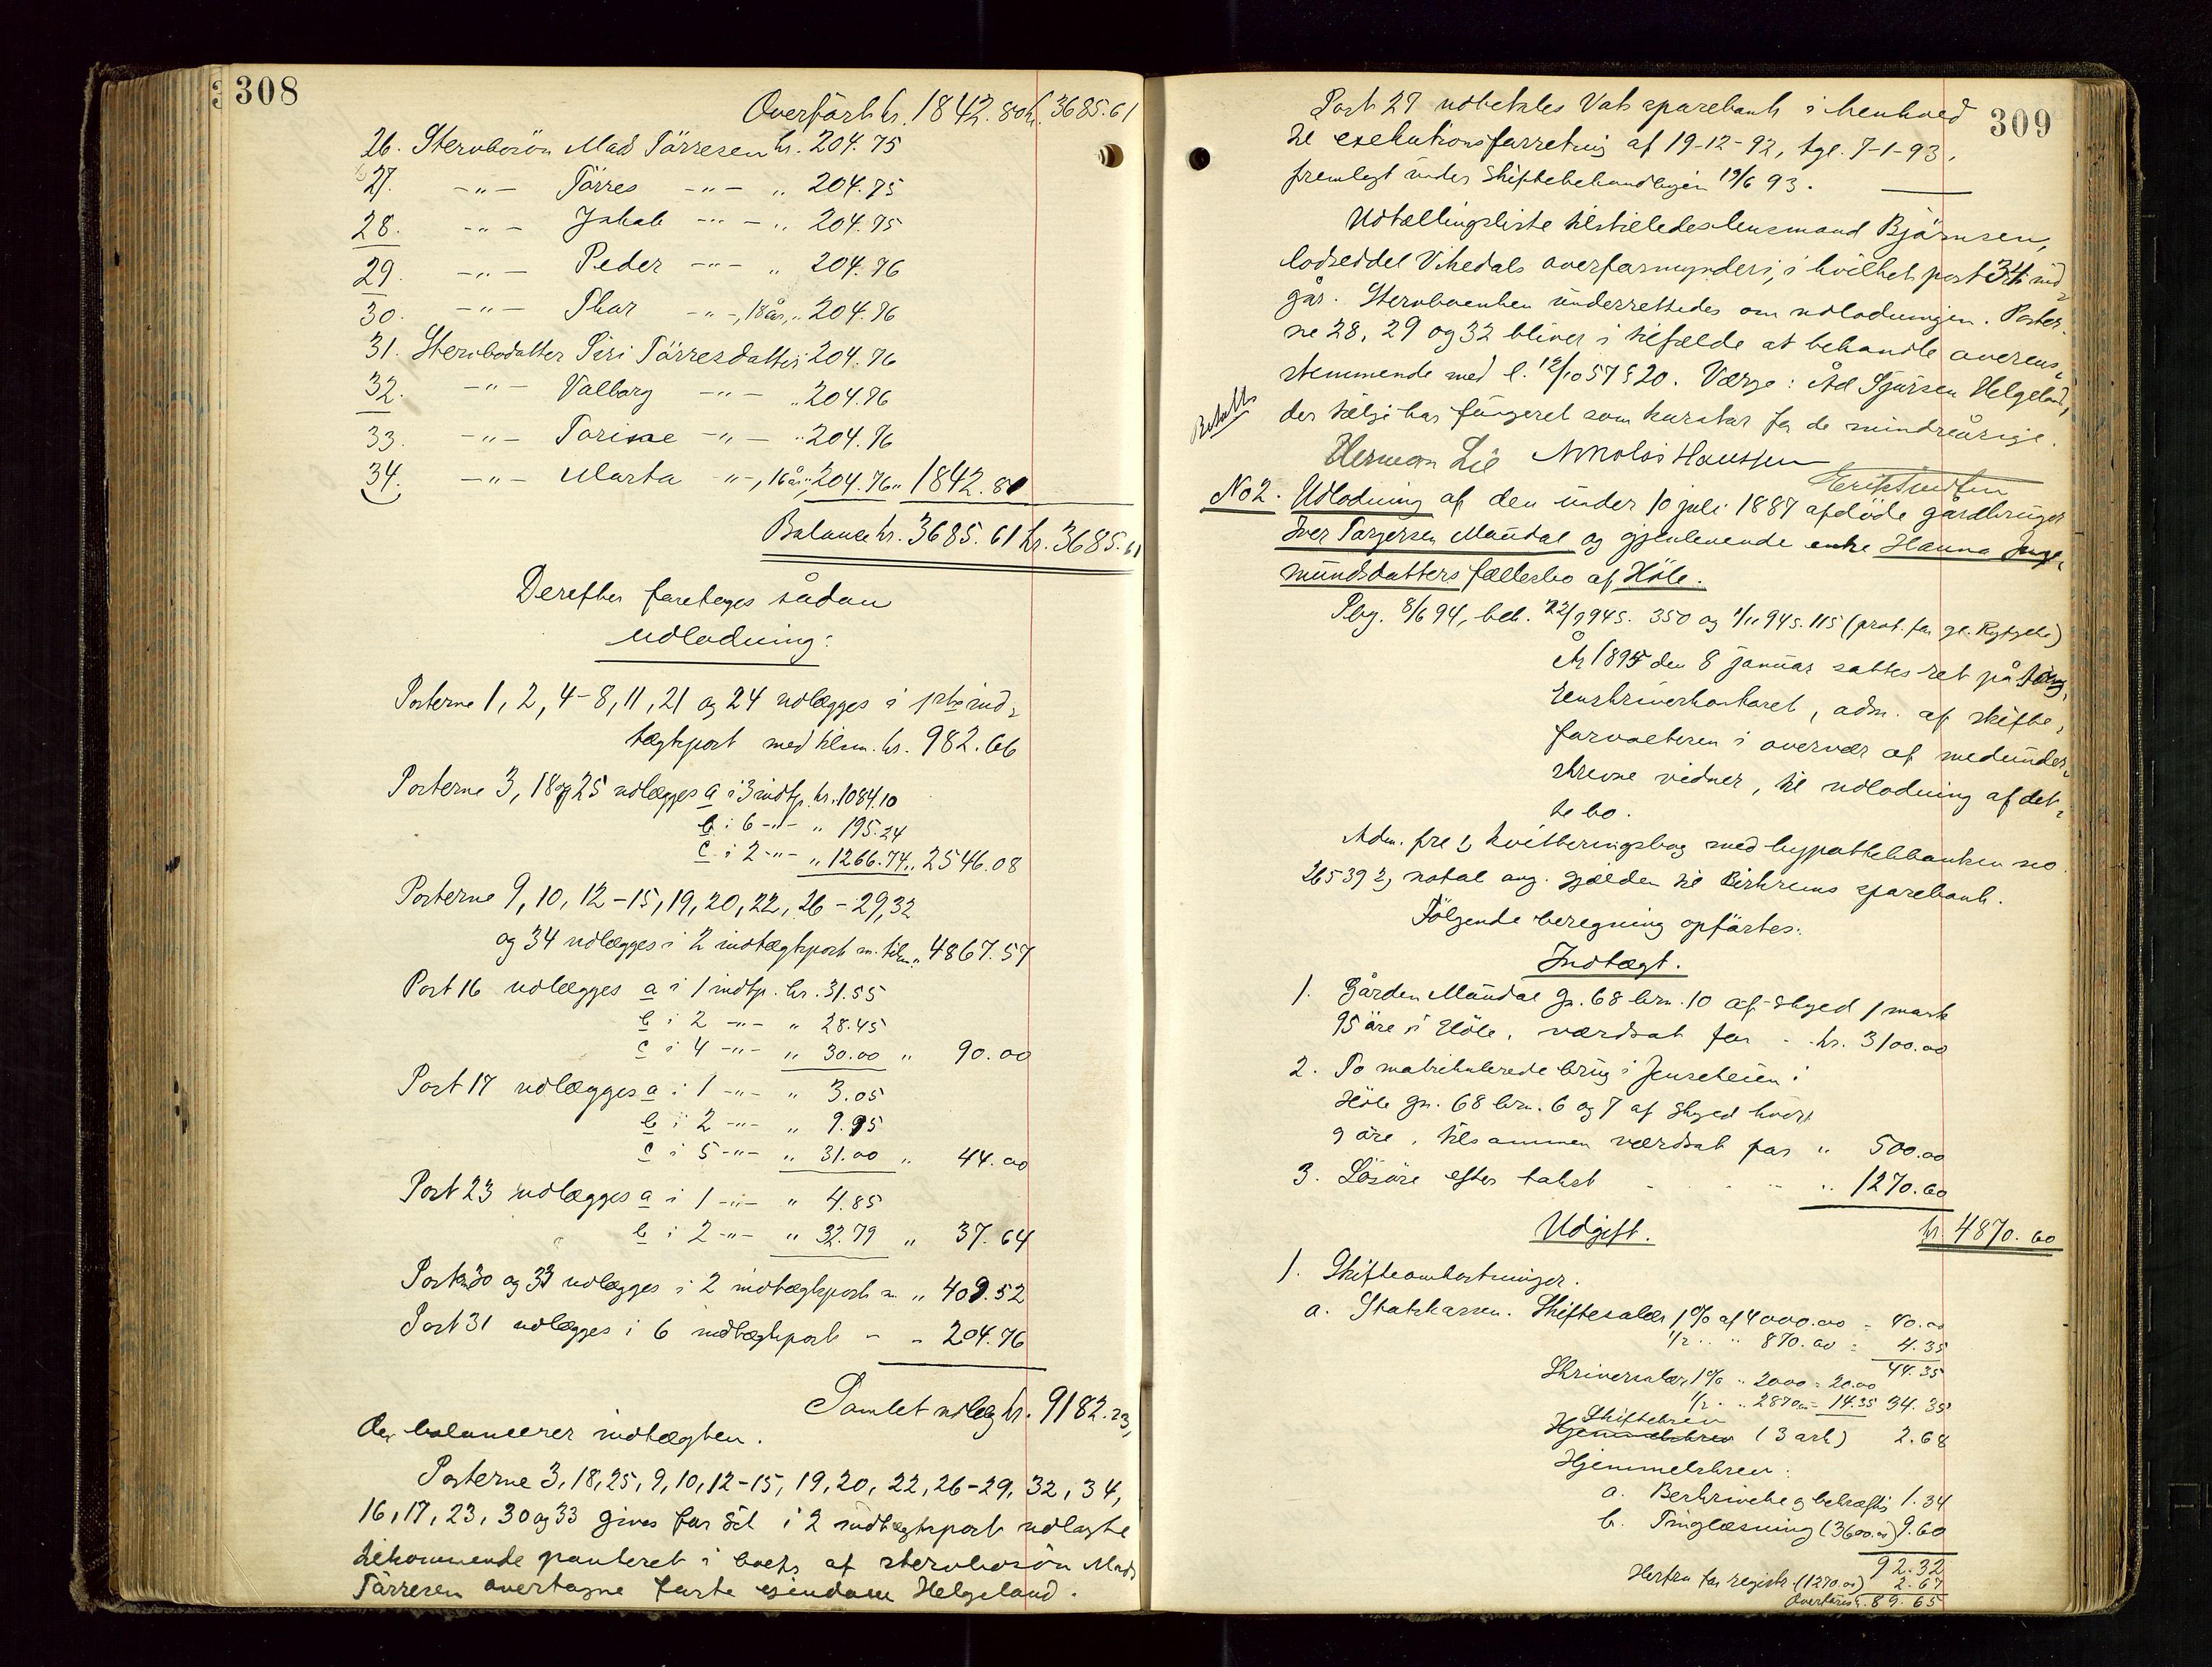 308
Overført kr. 1842.80 kr. 3685.61
26. Stervbosøn Mads Tørresen kr. 204.75
27. -"- Tørres -"- " 204.75
28. -"- Jakob -"- " 204.75
29. -"- Peder -"- " 204.76
30. -"- Thor -"-, 18 år, " 204.76
31. Stervbodatter Siri Tørresdatter 204.76
32. -"- Valborg -"- " 204.76
33. -"- Torine -"- " 204.76
34. -"- Marta -"-, 16 år " 204.76 " 1842.81
Balance kr. 3685.61 kr. 3685.61
Derefter foretoges sådan
udlodning:
Posterne 1, 2, 4-8, 11, 21 og 24 udlægges i 1ste ind-
tægtspost med tilsm. kr. 982.66
Posterne 3, 18 og 25 udlægges a i 3 indtp. kr. 1084.10
b i 6 -"- " 195.24
c i 2 -"- " 1266.74 " 2546.08
Posterne 9, 10, 12-15, 19, 20, 22, 26-29, 32
og 34 udlægges i 2 indtægtspost m. tilsm. " 4867.57
Post 16 udlægges a i 1 indtp. kr. 31.55
b i 2 -"- " 28.45
c i 4 -"- " 30.00 " 90.00
Post 17 udlægges a i 1 -"- " 3.05
b i 2 -"- " 9.95
c i 5 -"- " 31.00 " 44.00
Post 23 udlægges a i 1 -"- " 4.85
b i 2 -"- " 32.79 " 37.64
Post 30 og 33 udlægges i 2 indtægtspost m. " 409.52
Post 31 udlægges i 6 indtægtspost - " 204.76
Samlet udlæg kr. 9182.23,
der balancerer indtægten.
Posterne 3, 18, 25, 9, 10, 12-15, 19, 20, 22, 26-29, 32, 34,
16, 17, 23, 30 og 33 gives for det i 2 indtægtspost udlagte
tilkommende panteret i boets af stervbosøn Mads
Tørresen overtagne faste eiendom Helgeland.
309
Post 27 udbetales Vats sparebank i henhold
til exekutionsforretning af 19-12-92, tgl. 7-1-93,
fremlagt under skiftebehandlingen 19/6 93.
Udtællingsliste tilstilledes lensmand Bjørnsen,
lodseddel Vikedals overformynderi, i hvilket post 34 ind-
går. Stervboenken underrettedes om udlodningen. Poster-
ne 28, 29 og 32 bliver i tilfælde at behandle overens-
stemmende med l. 12/10 57 § 20. Værge: Ad Sjursen Helgeland,
der tillige har fungeret som kurator for de mindreårige.
Betalt
Herman Lie Nikolai Hanssen
Erik Knudsen
No 2. Udlodning af den under 10 juli 1887 afdøde gårdbruger
Iver Torgersen Maudal og gjenlevende enke Hanna Inge-
mundsdatters fællesbo af Høle.
Pbg. 8/6 94, beh. 22/9 94 s. 350 og 1/11 94 s. 115 (prot. for gl. Ryfylke)
År 1895 den 8 januar sattes ret på soren-
skriverkontoret, adm. af skifte-
forvalteren i overvær af medunder-
skrevne vidner, til udlodning af det-
te bo.
Adm. fre 1, kvitteringsbog med hypothekbanken no
26539 2, notat ang. gjælden til Birkrems sparebank.
Følgende beregning opførtes:
Indtægt.
1. Gården Maudal gn. 68 brn. 10 af skyld 1 mark
95 øre i Høle, værdsat for - kr. 3100.00
2. To matrikulerede brug i Jensebeien i
Høle gn. 68 brn. 6 og 7 af skyld hvert
9 øre, tilsammen værdsat for " 500.00
3. Løsøre efter takst - - - " 1270.60
kr. 4870.60
Udgift.
1. Skifteomkostninger.
a. Statskassen. Skiftesalær 1% af 4000.00 = 40.00
1/2 " " 870.00 = 4.35
44.35
Skriversalær 1% " 2000 = 20.00
1/2 " " 2870.00 = 14.35 34.35
Skiftebrev
Hjemmelsbrev (3 ark) 2.68
Hjemmelsbrev:
a. Beskrivelse og bekræft. 1.34
b. Tinglæsning (3600.00) 9.60
92.32
Herfra for registr. (1270.00) 2.67
Overføres kr. 89.65